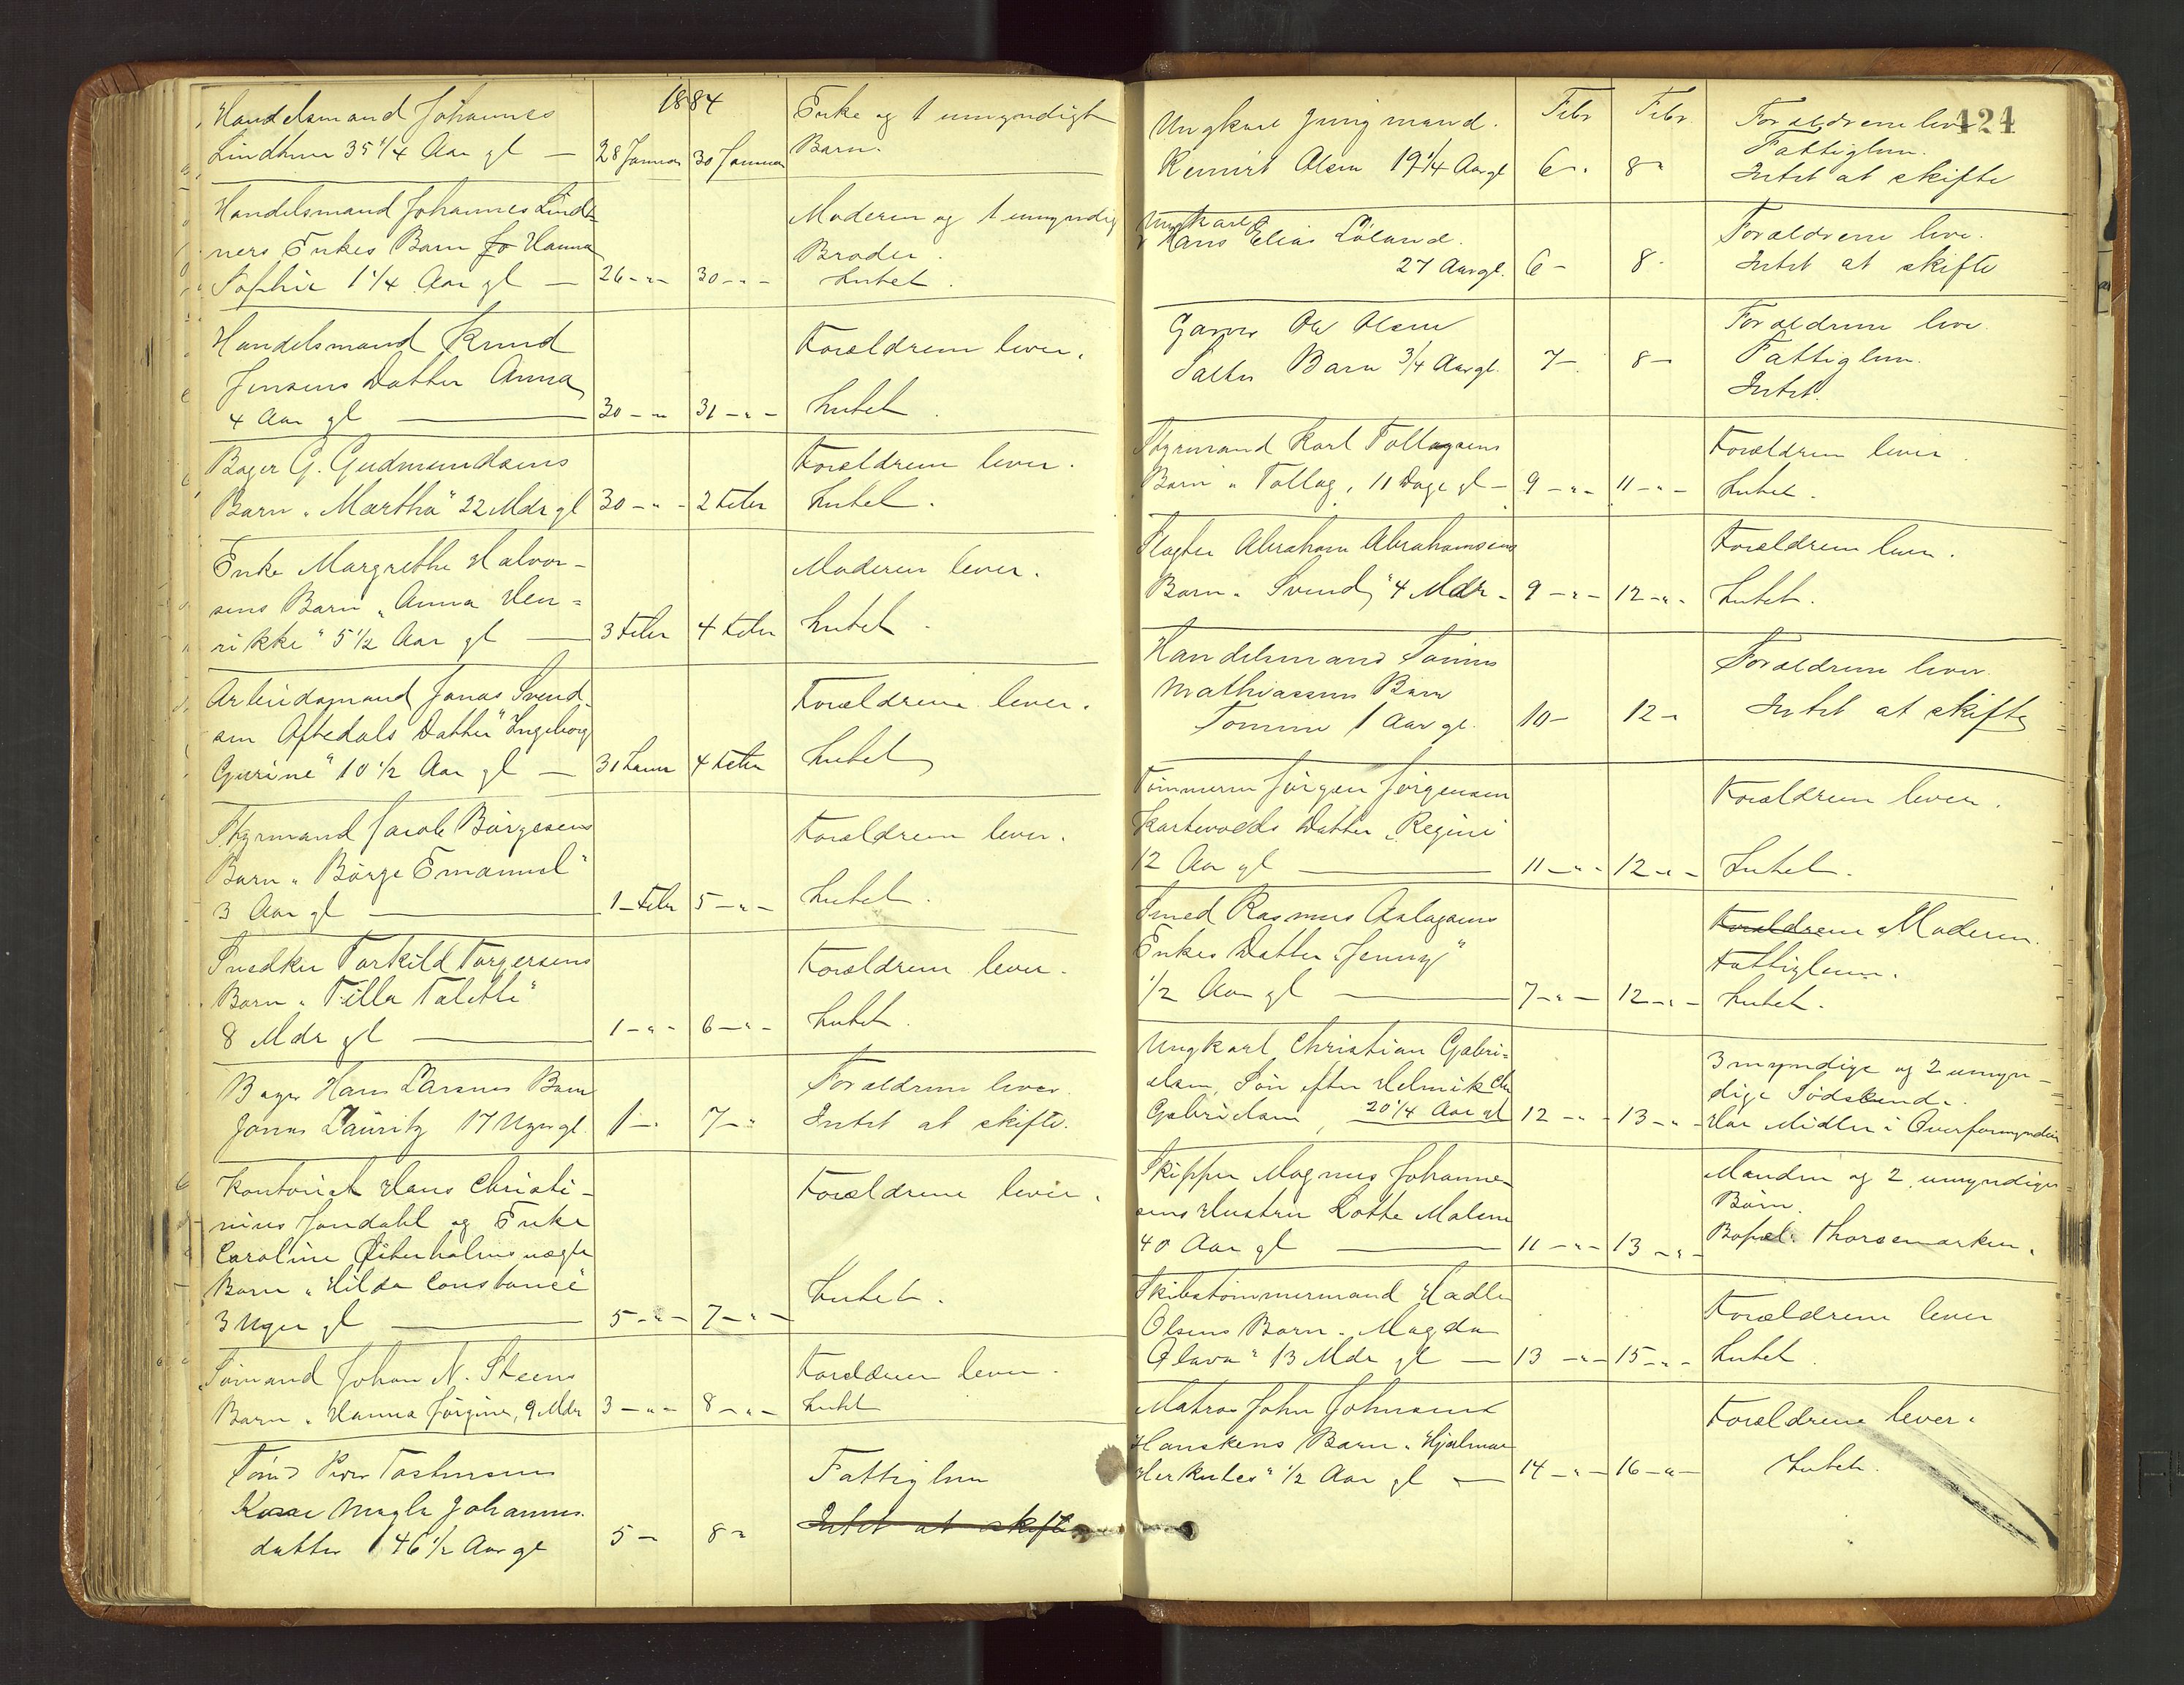 1884
Handelsmand Johannes
Lindtner 35 1/4 Aar gl — 28 Januar 30 Januar
Enke og 1 umyndigt
Barn.
Handelsmand Johannes Lindt-
ners Enkes Barn Jo Hanna
Sophie 1 1/4 Aar gl — 26 - " - 30 - " -
Moderen og 1 umyndig
Broder.
Intet.
Handelsmand Knud
Jensens Datter Anna
4 Aar gl — 30 - " - 31 - " -
Forældrene lever.
Intet.
Bager G. Gudmundsens
Barn "Martha" 22 Mdr gl 30 - " - 2 Febr
Forældrene lever.
Intet.
Enke Margrethe Halvor-
sens Barn "Anna Hen-
rikke" 5 1/2 Aar gl — 3 Febr 4 Febr
Moderen lever.
Intet.
Arbeidsmand Jonas Svend-
sen Aftedals Datter "Ingeborg
Gurine" 10 1/2 Aar gl — 31 Janr 4 Febr
Forældrene lever.
Intet
Styrmand Jacob Børgesens
Barn "Børge Emanuel"
3 Aar gl — 1 - Febr 5 - " -
Forældrene lever.
Intet.
Snedker Torkild Torgersens
Barn "Tilla Talette"
8 Mdr gl — 1 - " - 6 - " -
Forældrene lever.
Intet.
Bager Hans Larsens Barn
Jonas Lauritz 17 Uger gl. 1 - 7 - "
Forældrene lever.
Intet at skifte.
Kontorist Hans Christi-
nius Jondahl og Enke
Caroline
Barn "Hilda Constance"
3 Uger gl — 5 - " - 7 - " -
Forældrene lever.
Intet.
Sømand Johan N. Steens
Barn "Hanna Jørgine, 9 Mdr 3 - " - 8 - " -
Forældrene lever.
Intet
Johannes-
datter 46 1/2 Aar gl 5 - 8 "
Fattiglem
Intet at skifte
424
Febr Febr
Ungkarl Jungmand.
Olsen 19 1/4 Aar gl 6 - 8 "
Forældrene lever
Fattiglem.
Intet at skifte
Ungkarl
Hans Elias Løland.
27 Aar gl. 6 - 8 -
Forældrene leve.
Intet at skifte
Garver Ole Olsen
Barn 3/4 Aar gl. 7 - 8 -
Forældrene leve.
Fattiglem.
Intet.
Styrmand Karl Tollagsens
Barn "Tollag, 11 Dage gl - 9 - " - 11 - " -
Forældrene lever.
Intet.
Slagter Abraham Abrahamsens
Barn "Svend" 4 Mdr - 9 - " - 12 - " -
Forældrene lever.
Intet.
Handelsmand Tønnes
Mathiassens Barn
Tomine 1 Aar gl. 10 - 12 -
Forældrene lever.
Intet at skifte
Tømmerm Jørgen Jørgensen
Kartevolds Datter "Regine
12 Aar gl — 11 - " - 12 - " -
Forældrene lever.
Intet.
Smed Rasmus Aslagsens
Enkes Datter "Jenny"
1/2 Aar gl — 7 - " - 12 - " -
Forældrene Moderen.
Fattiglem.
Intet.
Ungkarl Christian Gabri-
elsen, Søn efter Helmik Chr
Gabrielsen, 20 1/4 Aar gl 12 - " - 13 - " -
3 myndige og 2 umyn-
dige Sødskende.
Har Midler i Overformynderi
Skipper Magnus Johanne-
sens Hustru Lotte Malene
40 Aar gl — 11 - " - 13 - " -
Manden og 2 umyndige
Børn.
Bopæl: Thorsemarken.
Skibstømmermand Hadle
Olsens Barn "Magda
Olava" 13 Mdr gl — 13 - " - 15 - " -
Forældrene lever
Intet.
Matros John Johnsens
Hanskens Barn "Hjalmar
Herkules" 1/2 Aar gl — 14 - " - 16 - " -
Forældrene lever.
Intet.